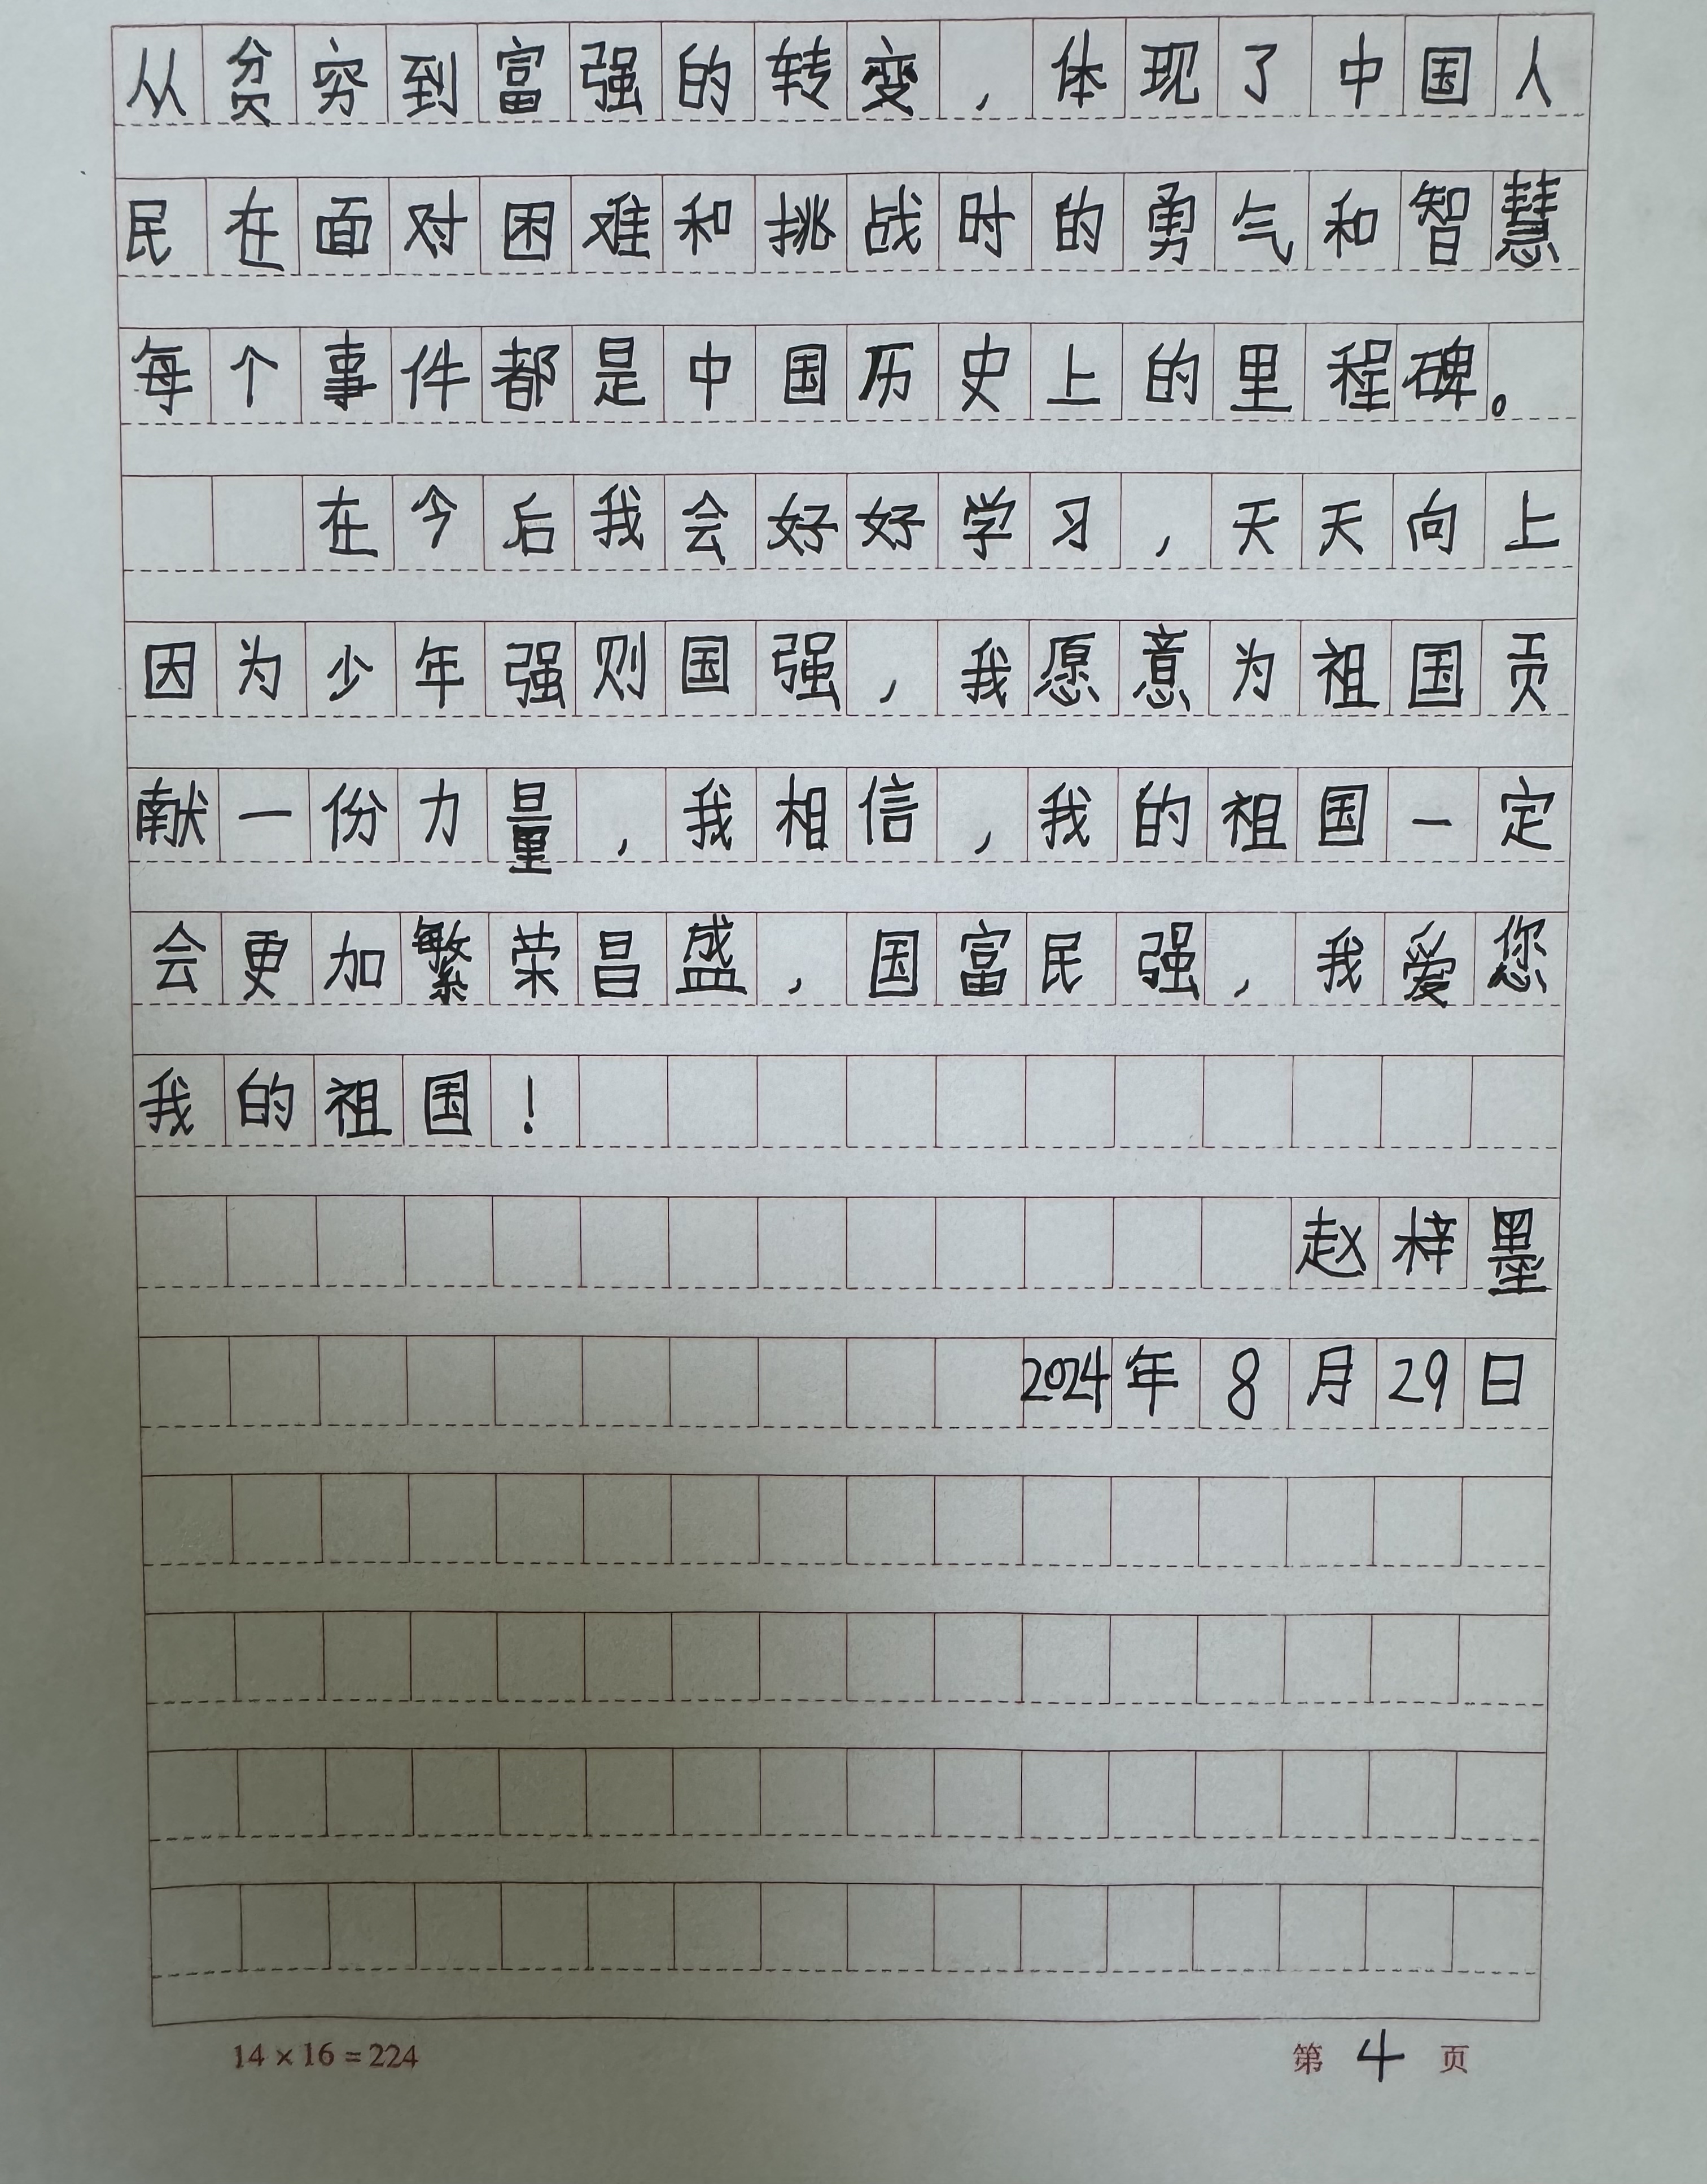 从贫穷到富强的转变，体现了中国人
民在面对困难和挑战时的勇气和智慧
每个事件都是中国历史上的里程碑。
在今后我会好好学习，天天向上
因为少年强则国强，我愿意为祖国贡
献一份力量，我相信，我的祖国一定
会更加繁荣昌盛，国富民强，我爱您
我的祖国！
赵梓墨
2024年8月29日
14×16=224
第4页